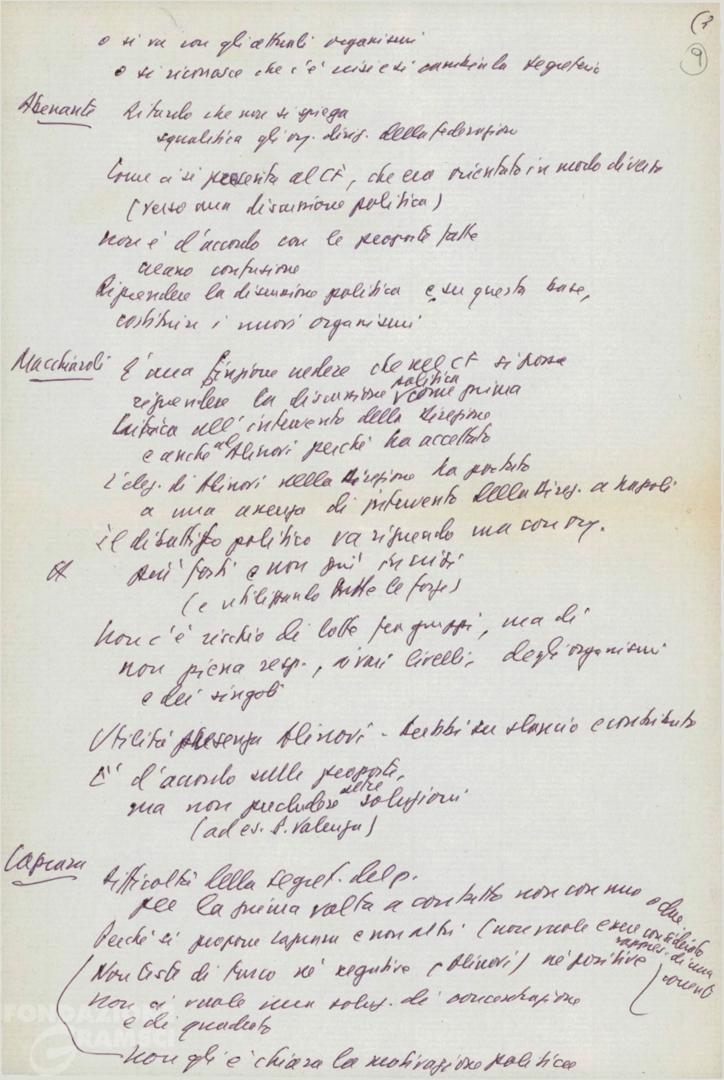 (2
9
o si va con gli attuali organismi
o si riconosce che c'è crisi e si cambia la segreteria
Abenante Ritardo che non si spiega
squalifica gli org. dirig. della Federazione
Come ci si presenta al CF, che era orientato in modo diverso
(verso una discussione politica)
Non è d'accordo con le proposte fatte
creano confusione
Riprendere la discussione politica e, su questa base,
costituire i nuovi organismi
Macchiaroli È una finzione vedere che nel CF si possa
riprendere la discussione politica come prima
Critica all'intervento della Direzione
e anche ad Alinovi perché ha accettato
L'elez. di Alinovi nella Direzione ha portato
a una assenza di intervento della Direz. a Napoli
Il dibattito politico va ripreso ma con org.
più forti e non più in crisi
(e utilizzando tutte le forze)
Non c'è rischio di lotte fra gruppi, ma di
non piena resp., ai vari livelli, degli organismi
e dei singoli
Utilità presenza Alinovi - dubbi su slancio e contributo
È d'accordo sulle proposte,
ma non precludere altre soluzioni
(ad es. P. Valenza)
Caprara Difficoltà della segret. del p.
per la prima volta a contatto non con uno o due
Perché si propone Caprara e non altri (non vuole essere considerato
rappres. di una
corrente)
Non teste di turco né negative (Alinovi) né positive
Non ci vuole una soluz. di concentrazione
e di quadrato
Non gli è chiara la motivazione politica
FONDAZIONE
GRAMSCI